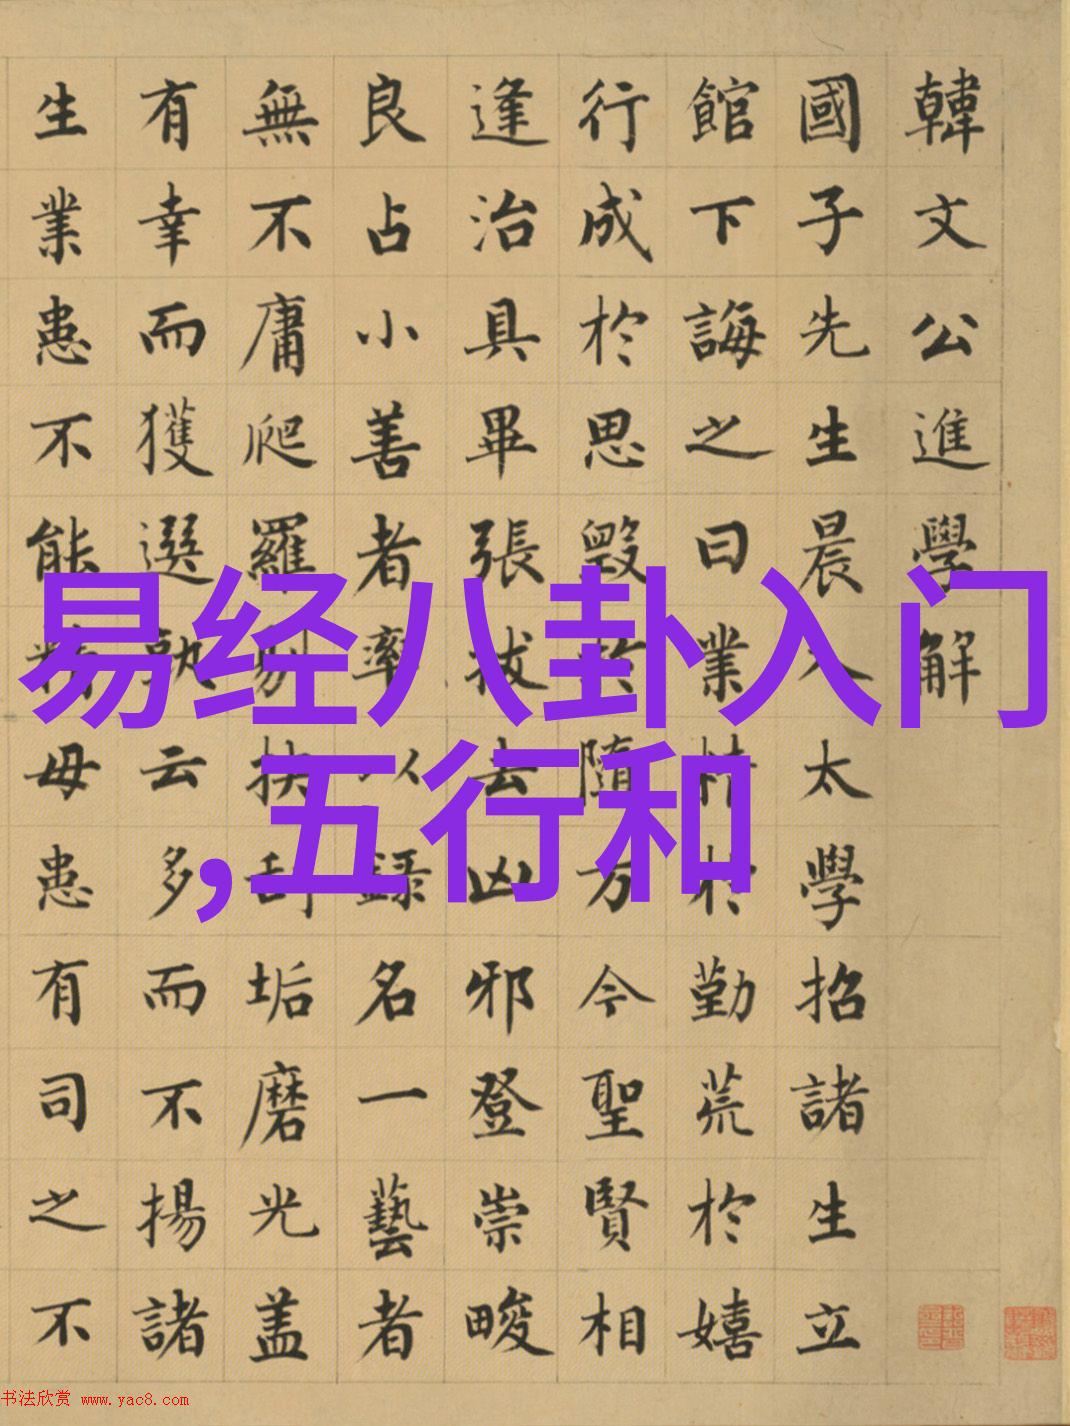 韓文公進學解
國子先生晨入太學招諸生立
館下誨之曰業精於勤荒於嬉
行成於思毀於隨方今聖賢相
逢治具畢張拔去凶邪登崇畯
良占小善者率以錄名一藝者
無不庸爬羅剔抉刮垢磨光盖
有幸而獲選孰云多而不揚諸
生業患不能精毋患有司之不
易经八卦入门
,五行和
书法欣赏 www.yac8.com